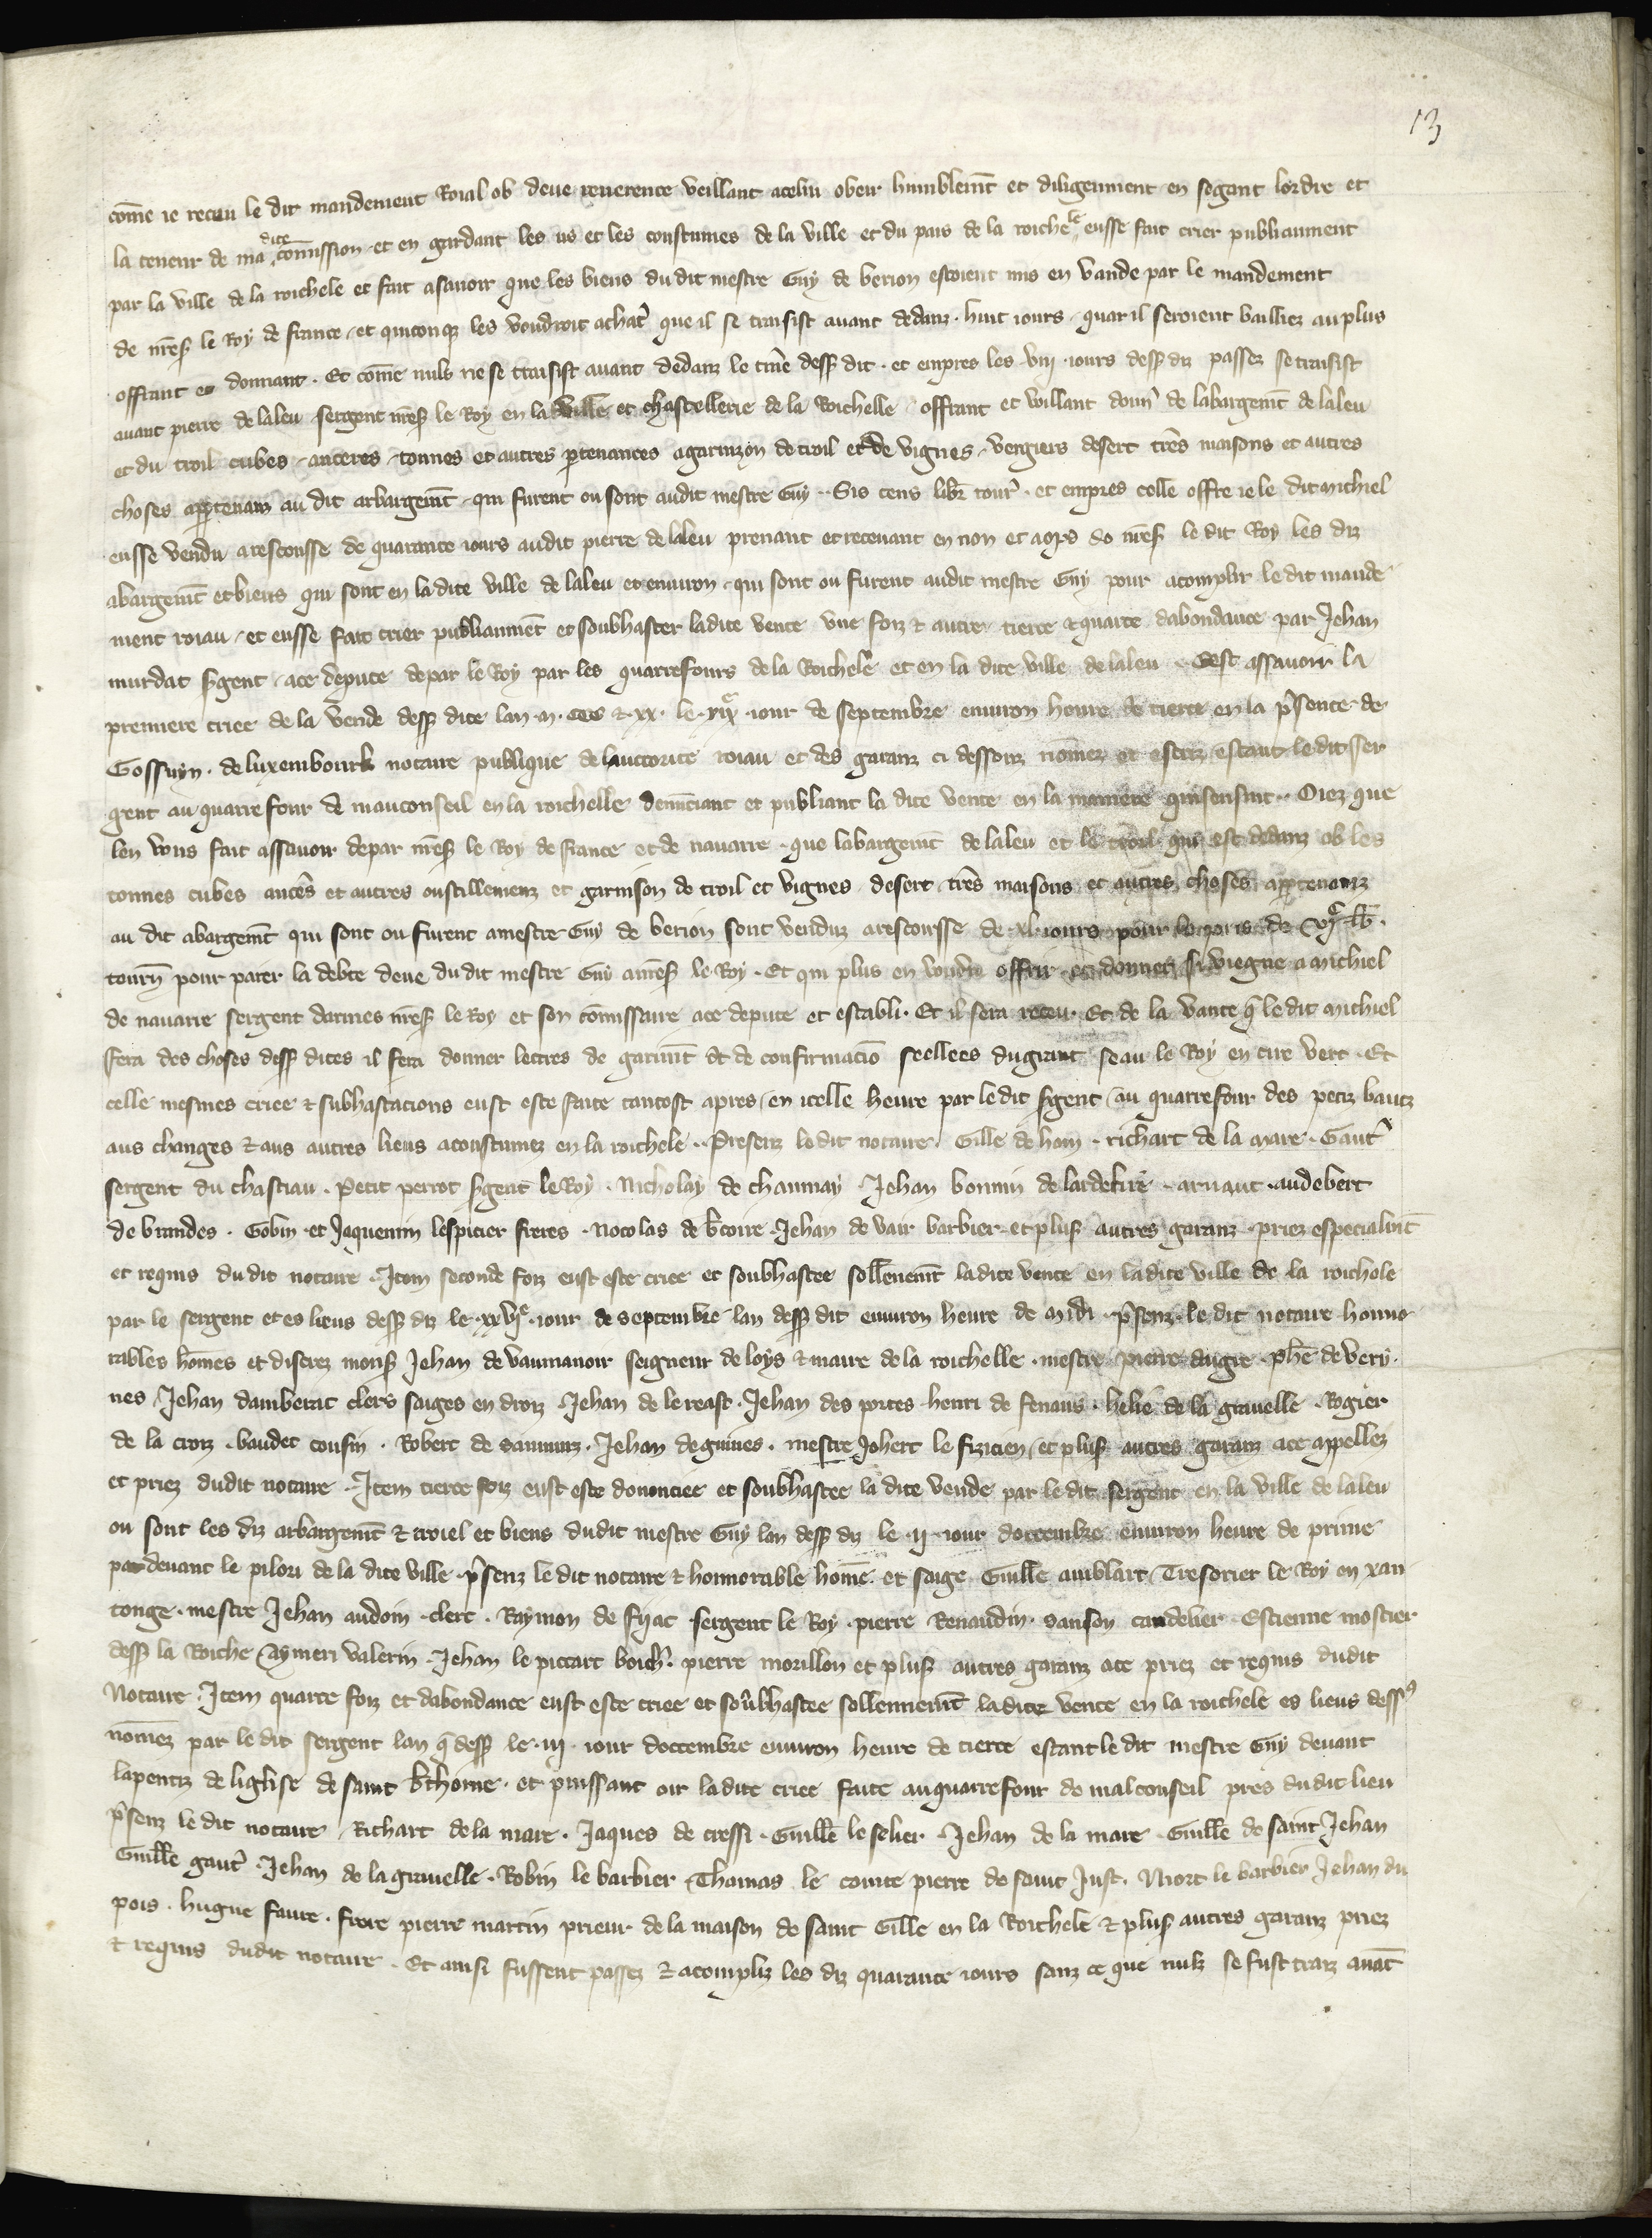 13
come ie receu le dit mandement Roial ob deue reuerence veillant acelui obeir humblemēt et diligemment en segant lordre et
la teneur de ma dite cōmission et en gardant les us et les coustumes de la ville et du pais de la roichele eusse fait crier publiaument
par la ville de la roichele et fait asauoir que les biens du dit mestre Guy de berion estoient mis en vande par le mandement
de mēs le Roy de france et quiconq̄ les voudroit achat̄ que il se traisist auant dedanz huit iours quar il seroient bailliez au plus
offrant et donnant . Et cōme nuls ne se traisist auant dedanz le t̄me dess dit . et empres les viij iours dess diz passez se traisist
auant pierre de laleu sergent mēs le Roy en la ville et chastellerie de la Roichelle offrant et veillant doun̄ de labargemēt de laleu
et du troil cubes anceres tonnes et autres ptenances agarnizon de troil et de vignes vergiers desert t̄res maisons et autres
choses apptenanz au dit arbargemēt qui furent ou sont audit mestre Guy . Sis cens libr̄ tour̄ . et empres celle offre ie le dit michiel
eusse vendu a rescousse de quarante iours audit pierre de laleu prenant et recenant en non et a ops do mēs le dit Roy les diz
abargemēt et biens qui sont en la dite ville de laleu et enuiron qui sont ou furent audit mestre Guy pour acomplir le dit mande
ment roiau et eusse fait crier publiaumēt et soubhaster ladite vente vne foiz & autre tierce & quarte dabondance par Jehan
murdat sgent ace depute depar le Roy par les quarrefours de la Roichele et en la dite ville de laleu . Cest assauoir la
premiere criee de la vende dess dite lan .m. ccc & xx. le .xix.e iour de septembre enuiron heure de tierce en la p̄sente de
Gossuyn . de luxembourk notaire publique de lauctorite roiau et des garanz ci dessouz nōmez et escriz estant le dit ser
gent au quarrefour de mauconseil en la roichelle denūciant et publiant la dite vente en la maniere quisensuit . Oiez que
len vous fait assauoir depar mēs le Roy de france et de nauarre que labargemēt de laleu et le troil qui est dedanz ob les
tonnes cubes anceres et autres oustillemenz et garnison de troil et vignes desert t̄res maisons et autres choses apptenanz
au dit abargemēt qui sont ou furent a mestre Guy de berion sont venduz a rescousse de .xl. iours pour le pris de vj.c lb̄.
tourn̄ pour paier la debte deue du dit mestre Guy a mēs le Roy . Et qui plus en voudra offrir et donner si viegne a michiel
de nauarre sergent darmes mēs le Roy et son cōmissaire ace depute et establi . Et il sera receu . Et de la vante q̄ le dit michiel
fera des choses dess dites il fera donner lectres de garimēt et de confirmaciō seellees du grant seau le Roy en cire vert . Et
celle mesmes criee & subhastacions eust este faite tantost apres en icelle heure par le dit sgent au quarrefour des petiz bantz
aus changes & aus autres lieus acoustumez en la roichele . Presenz le dit notaire . Gille de ham . richart de la mare . Gaut̄
sergent du chastiau . Petit perrot sgent le Roy . Nicholay de chaunay Jehan bonnin de lardekire . arnaut . audebert
de brandes . Gobin et Jaquemin lespicier freres . nocolas de b̄toire . Jehan de vair barbier et plus autres garanz . priez especialmēt
et requis du dit notaire . Item seconde foiz eust este criee et soubhastee sollēnemēt ladite vente en ladite ville de la roichole
par le sergent et es lieus dess diz le .xxvj.e iour de septembre lan dess dit enuiron heure de midi . p̄senz le dit notaire honno
rables hōmes et discrez mons Jehan de vaumanoir seigneur de loys & maire de la roichelle . mestre pierre daugre . ph̄e de very.
nes Jehan damberac clers saiges en droiz . Jehan de le reast . Jehan des portes henri de fenaus . helie de la grauelle . Rogier
de la croiz . baudet cousin . Robert de saumurz . Jehan deguines . mestre Johert le fizicien et plus autres garanz ace appellez
et priez dudit notaire . Item tierce foiz eust este dononciee et soubhastee la dite vende par le dit sergent en la ville de laleu
ou sont les diz arbargemēt & troiel et biens dudit mestre Guy lan dess diz le .ij. iour doctembre enuiron heure de prime
par deuant le pilori de la dite ville . p̄senz le dit notaire & honnorable hōme et saige Guille amblart Tresorier le Roy en xan
tonge . mestre Jehan audoin clerc . Raymon de fijac sergent le Roy . pierre Renaudin . sanson candelier . Estienne mostier
dess la Roiche Aymeri valerin . Jehan le piccart boich̄ . pierre morillon et plus autres garanz ace priez et requis dudit
Notaire . Item quarte foiz et dabondance eust este criee et soubhastee sollennemēt ladite vente en la roichele es lieus dess
nōmez par le dit sergent lan q̄ dess le .iij. iour doctembre enuiron heure de tierce estant le dit mestre Guy deuant
lapentiz de liglise de saint b̄thome . et puissant oir ladite criee faite au quarrefour de malconseil pres dudit lieu
p̄senz le dit notaire . Richart de la mare . Jaques de cressi . Guille le selier . Jehan de la mare . Guille de saint Jehan
Guille gaut̄ . Jehan de la grauelle . Robin le barbier . Thomas le comte pierre de saint Just . Niort le barbier Jehan du
pois . hugue faure . frere pierre martin prieur de la maison de saint Gille en la Roichele & plus autres garanz priez
& requis dudit notaire . Et ainsi fussent passez & acompliz les diz quarante iours sanz ce que nulz se fust traiz auāt